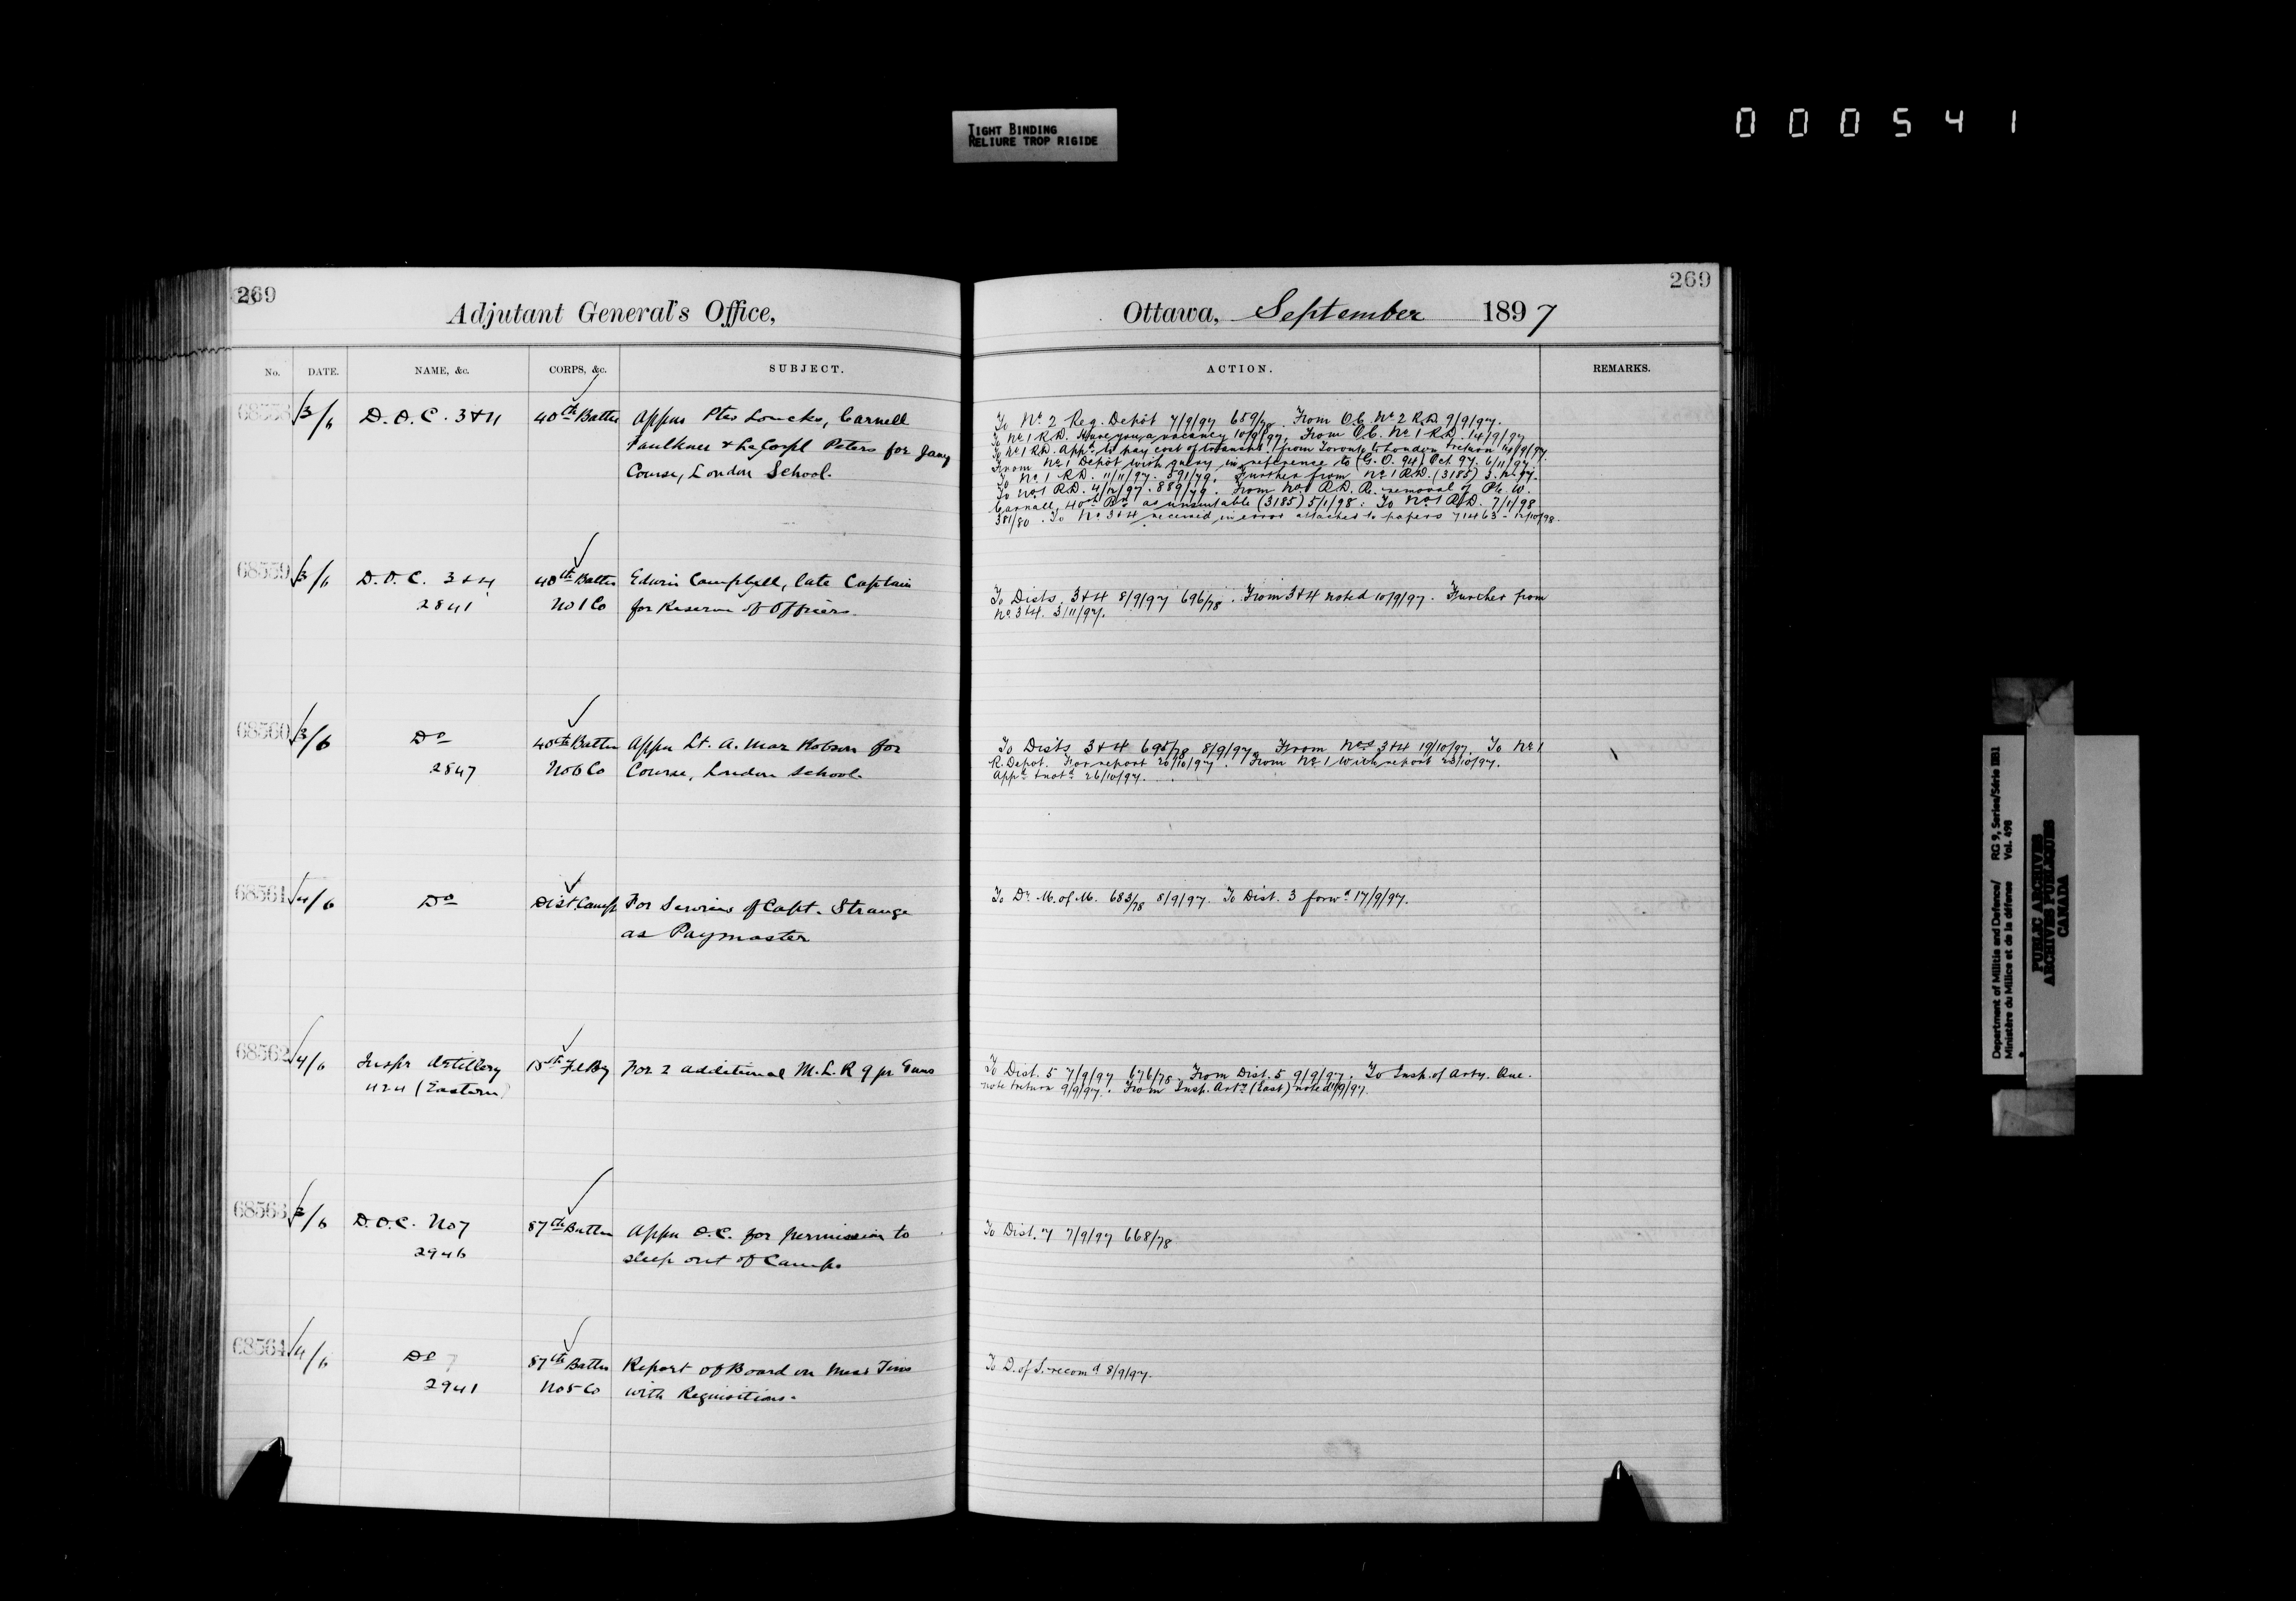 TIGHT BINDING
RELIURE TROP RIGIDE
000541
269
Adjutant General's Office,
No. DATE. NAME, &c. CORPS, &c. SUBJECT.
3/6 D.O.C. 3+4 40th Battn Appns Ptes Loucks, Carnell
Faulkner & Corpl Peters for Jany
Course, London School.
68559 3/6 D.O.C. 3+4 40th Battn Edwin Campbell, late Captain
2841 No 1 Co for Reserve of Officers.
68560 3/6 Do 40th Battn Appn Lt. A. Robson for
2847 No 6 Co Course, London School.
68561 4/6 Do Dist. Camp For Services of Capt. Strange
as Paymaster
68562 4/6 Inspr Artillery For 2 additional M.L.R 9 pr Guns
(Eastern)
68563 D.O.C. No 7 87th Battn Appn O.C. for permission to
2946 sleep out of Camp.
68564 4/6 Do 87th Battn Report of Board on Mess Tins
2941 No 5 Co with Requisitions.
269
Ottawa, September 1897
ACTION. REMARKS.
To No 2 Reg. Depôt 7/9/97 From O.C. No 2 R.D. 9/9/97.
To No 1 R.D. Have you a vacancy 10/9/97. From O.C. No 1 R.D. 14/9/97
To No 1 R.D. App. to pay cost of transpt. from Toronto to London & return 14/9/97.
From No 1 Depôt with query in reference to (G.O. 94) Oct 97. 6/11/97.
To No 1 R.D. 11/11/97. 591/79. Further from No 1 R.D. (3185)
To No 1 R.D. 889/79. From No 1 R.D. Re removal of Pte W.
Carnall, 40th Bn as unsuitable (3185) 5/1/98. To No 1 R.D. 7/1/98
381/80. To No 3+4 received in error attached to papers 71463 - 12/10/98.
To Dists. 3+4 8/9/97 696/78. From 3+4 noted 10/9/97. Further from
No 3+4. 3/11/97.
To Dists 3+4 695/78 8/9/97. From Nos 3+4 19/10/97. To No 1
R. Depot. For report 20/10/97. From No 1 with report 23/10/97.
26/10/97.
To D. M. of M. 683/78 8/9/97. To Dist. 3 forwd 17/9/97.
To Dist. 5 7/9/97 676/78. From Dist. 5 9/9/97. To Insp. of Arty. Que.
note & return 9/9/97. From Insp. Arty (East) noted
To Dist. 7 7/9/97 668/78
To D. of S. recomd 8/9/97.
Department of Militia and Defence/ RG 9, Series/Série IIB1
Ministère du Milice et de la défense Vol. 498
PUBLIC ARCHIVES
ARCHIVES PUBLIQUES
CANADA